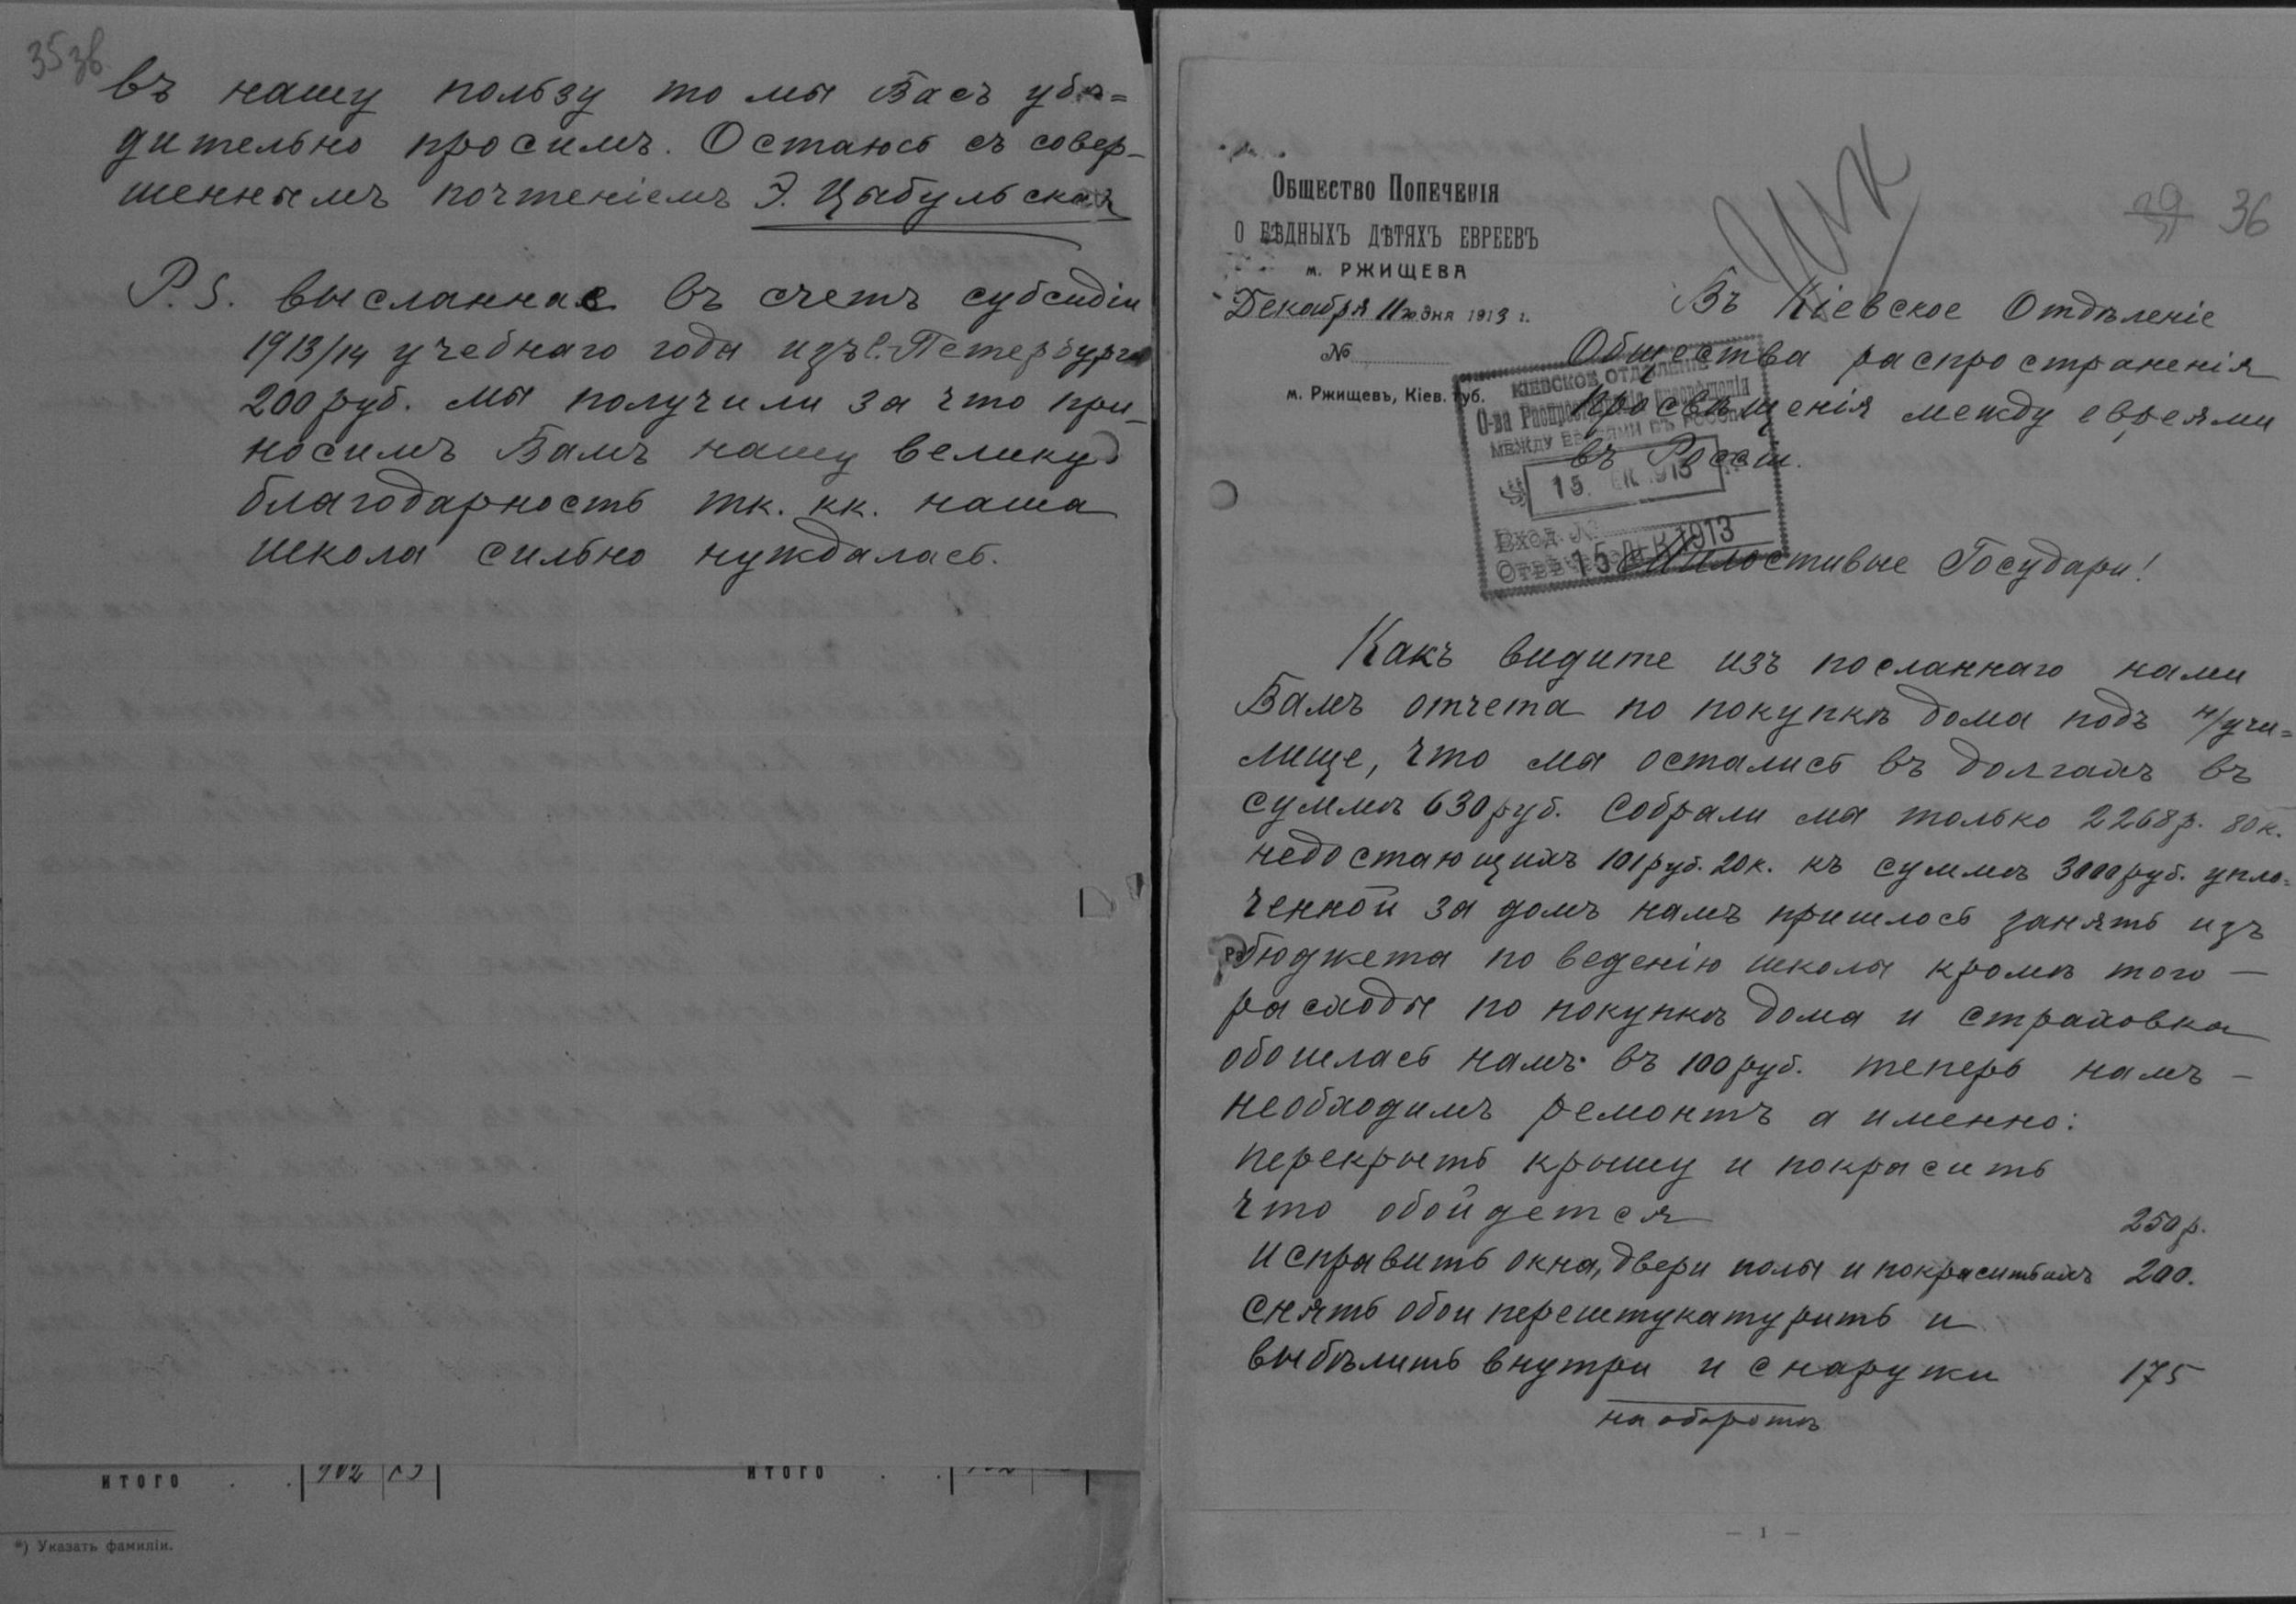 35 зв.
въ нашу пользу то мы Васъ убѣ=
дительно просимъ. Остаюсь съ совер-
шеннымъ почтеніемъ Э. Цыбульская
P.S. высланнае въ счетъ субсидіи
1913/14 учебнаго года изъ С. Петербурга
200 руб. мы получили за что при-
носимъ Вамъ нашу велику
благодарность тк. кк. наша
школа сильно нуждалась.
ИТОГО
ИТОГО
*) Указать фамиліи.
29 36
Общество Попеченія
О БѢДНЫХЪ ДѢТЯХЪ ЕВРЕЕВЪ
м. РЖИЩЕВА
Декабря 11го дня 1913 г.
№
м. Ржищевъ, Кіев. губ.
КІЕВСКОЕ ОТДѢЛЕНІЕ
О-ва Распространенія просвѣщенія
МЕЖДУ ЕВРЕЯМИ ВЪ РОССІИ
15 ДЕК 1913
Вход. №
15 ДЕК 1913
Въ Кіевское Отдѣленіе
Общества распространенія
просвѣщенія между евреями
въ Россіи.
Милостивые Государи!
Какъ видите изъ посланнаго нами
Вамъ отчета по покупкѣ дома подъ н/учи=
лище, что мы остались въ долгахъ въ
суммѣ 630 руб. Собрали мы только 2268 р. 80 к.
недостающихъ 101 руб. 20 к. къ суммѣ 3000 руб. упло=
ченной за домъ намъ пришлось занять изъ
бюджета по веденію школы кромѣ того —
расходы по покупкѣ дома и страховка
обошлась намъ въ 100 руб. теперь намъ —
необходимъ ремонтъ а именно:
перекрыть крышу и покрасить
что обойдется 250 р.
исправить окна, двери полы и покрасить ихъ 200.
снять обои перештукатурить и
выбѣлить внутри и снаружи 175
на оборотѣ
— 1 —